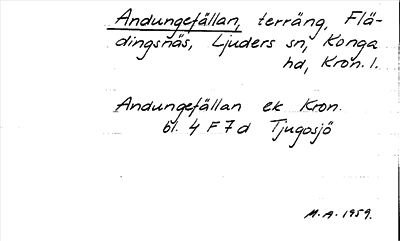 Andungefällan, terräng, Flä-
dingsnäs, Ljuders sn, Konga
hd, Kron. l.
Andungefällan ek Kron.
bl. 4 F 7 d Tjugosjö
M.A. 1959.